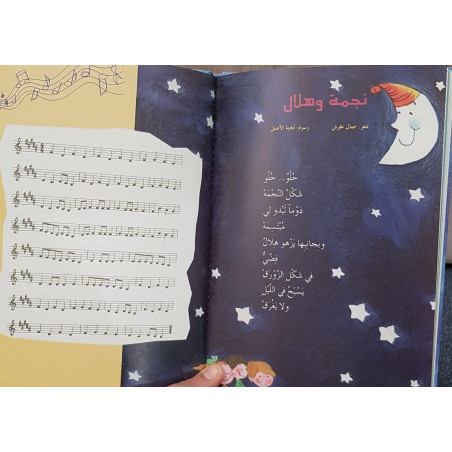 نجمة وهلال
شعر: جمال علوش
رسوم: لجينة الأصيل
حُلْوٌ... حُلْو
شَكْلُ النَّجْمَهْ
دَوْماً تَبْدُو لي
مُبْتَسِمَهْ
وبِجانِبِها يَزْهو هِلالٌ
فِضِّيٌّ
في شَكْلِ الزَّوْرَقْ
يَسْبَحُ في اللَّيْلِ
ولا يَغْرَقْ